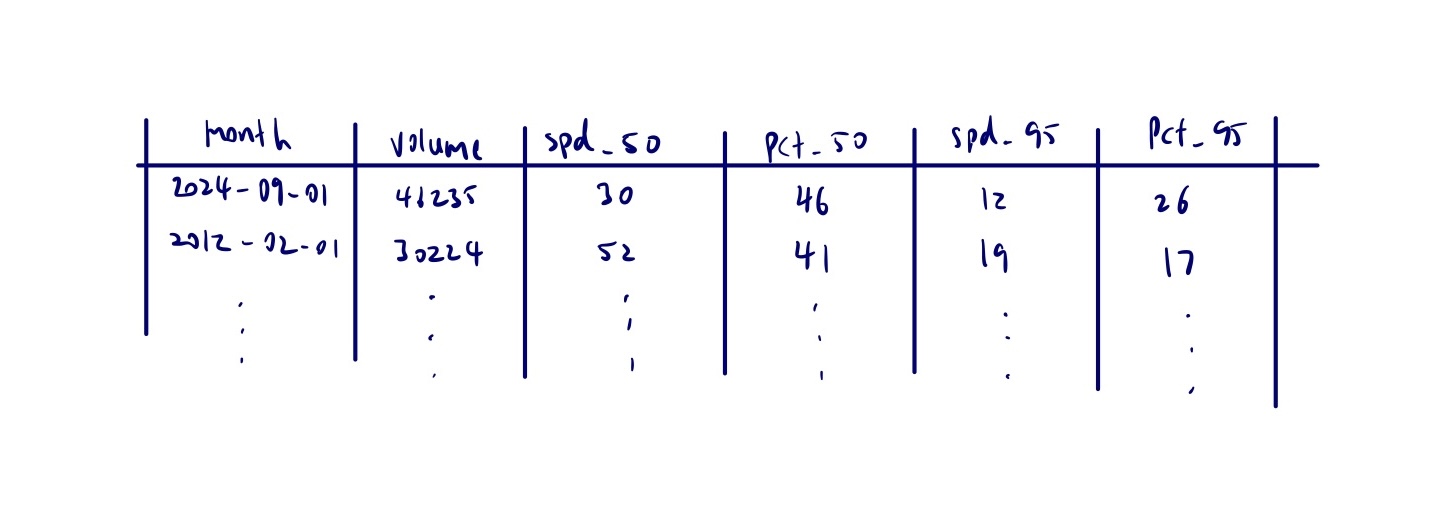 month volume spd_50 pct_50 spd_95 pct_95
2024-09-01 41235 30 46 12 26
2012-02-01 30224 52 41 19 17